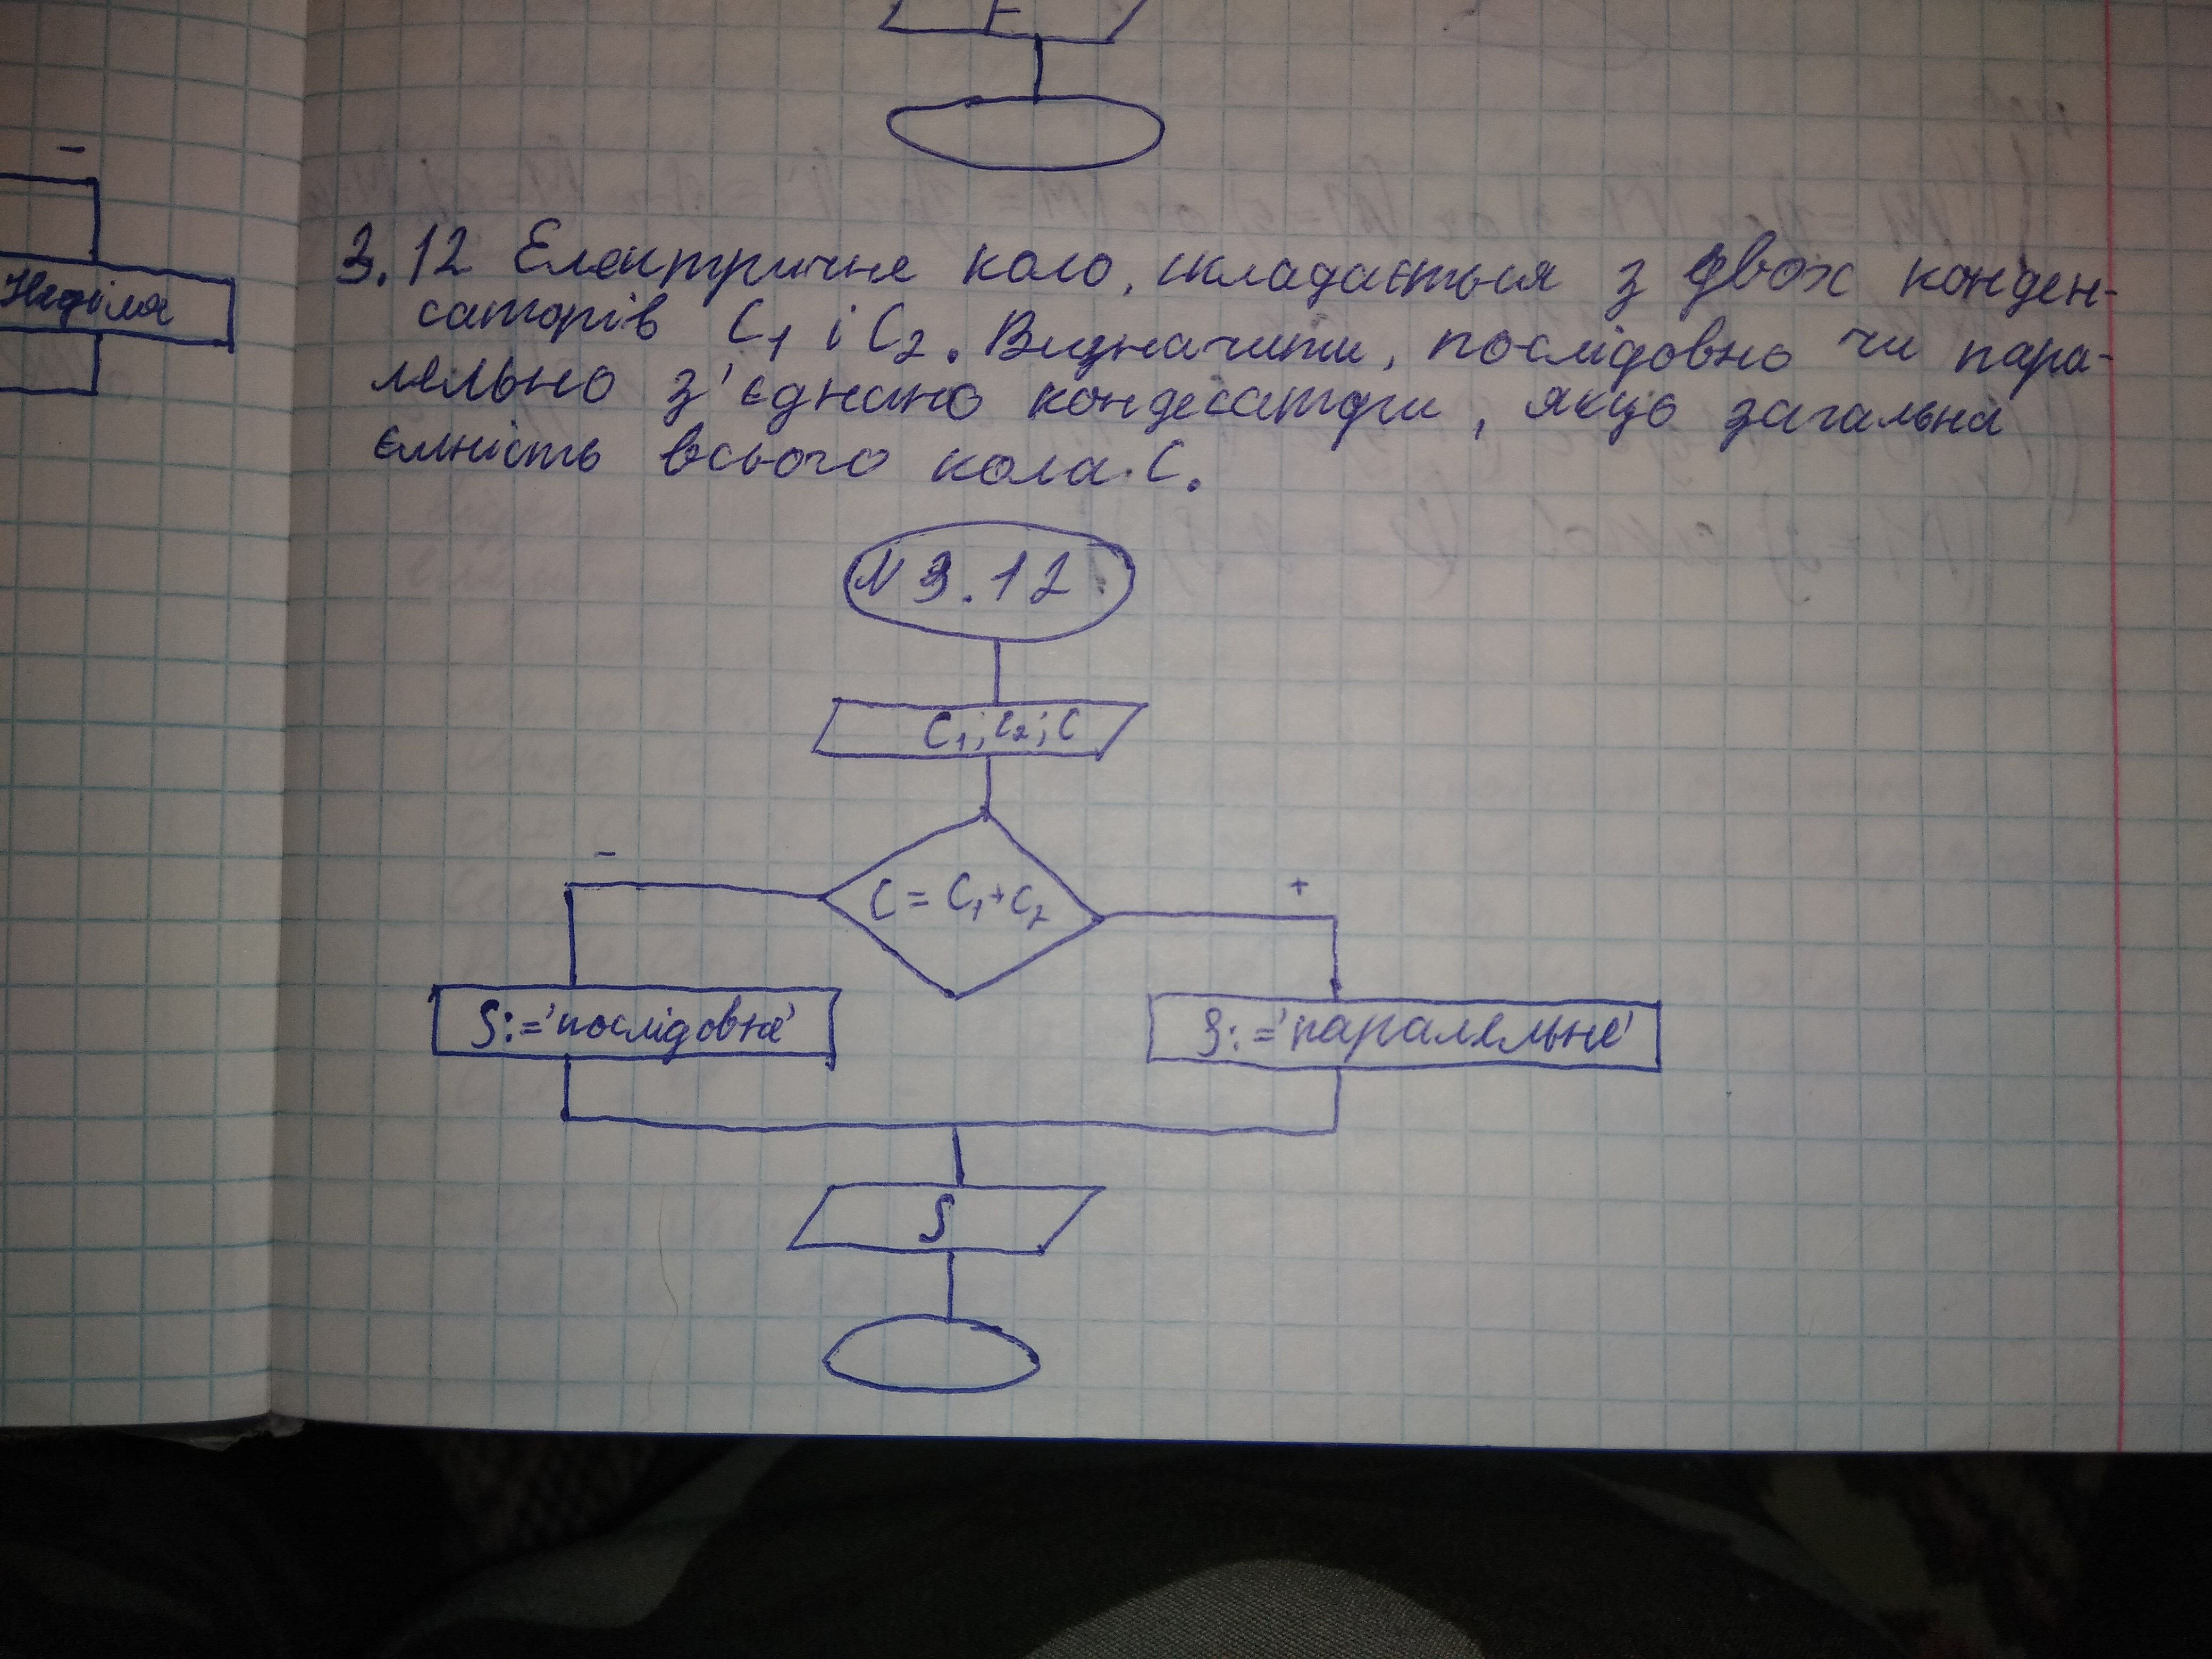 F
-
Неділя
3.12 Електричне коло, складається з двох конден-
саторів C₁ і C₂. Визначити, послідовно чи пара-
лельно з'єднано кондесатори, якщо загальна
ємність всього кола C.
N 3.12
C₁; C₂; C
C = C₁+C₂
-
+
S:='послідовне'
S:='паралельне'
S